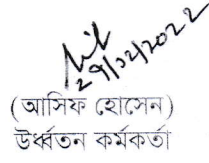 ২৭/১২/২০২২
(আসিফ হোসেন)
উর্ধ্বতন কর্মকর্তা